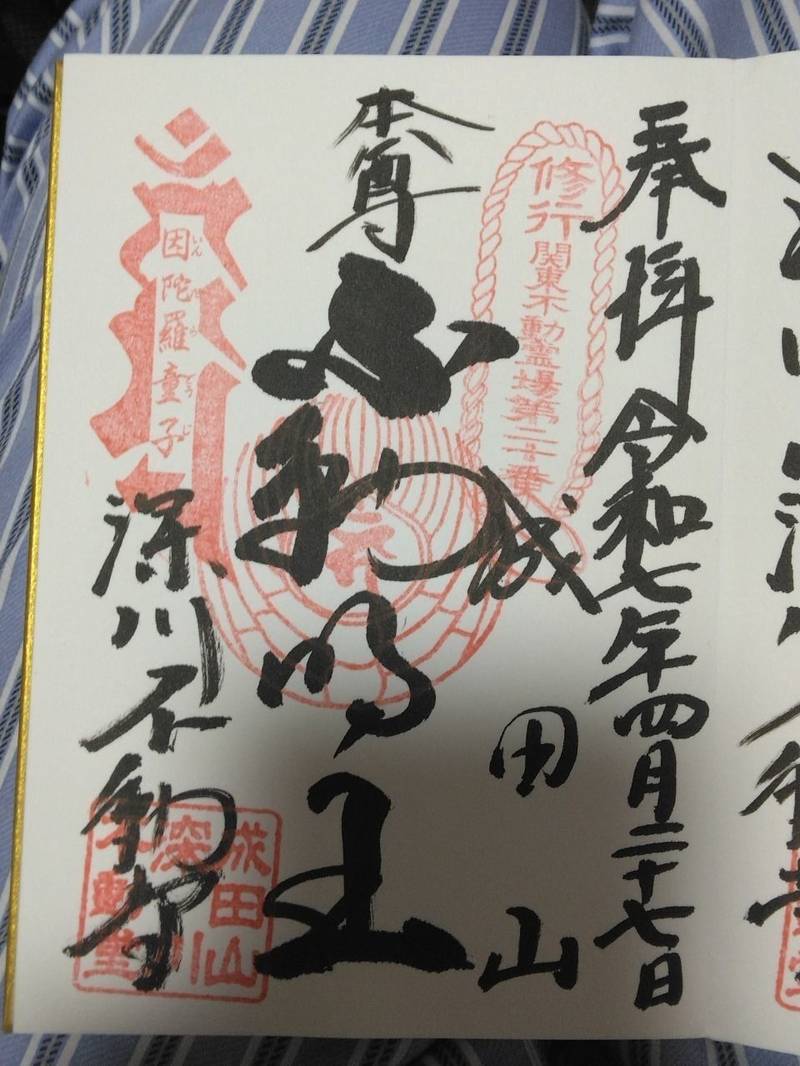 奉拝 令和七年四月二十七日
修行 関東不動霊場第二十番
成田山
本尊 不動明王
因陀羅童子
いんだらどうじ
深川不動堂
成田山
深川
不動堂